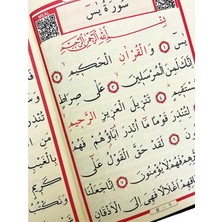 سُورَةُ يٰسٓ
بِسْمِ اللّٰهِ الرَّحْمٰنِ الرَّحِيمِ
يٰسٓ ﴿١﴾ وَالْقُرْاٰنِ الْحَكِيمِ ﴿٢﴾
اِنَّكَ لَمِنَ الْمُرْسَلِينَ ﴿٣﴾ عَلٰى صِرَاطٍ
مُسْتَقِيمٍ ﴿٤﴾ تَنْزِيلَ الْعَزِيزِ الرَّحِيمِ ﴿٥﴾
لِتُنْذِرَ قَوْمًا مَا اُنْذِرَ اٰبَاؤُهُمْ فَهُمْ
غَافِلُونَ ﴿٦﴾ لَقَدْ حَقَّ الْقَوْلُ عَلٰى
اَكْثَرِهِمْ فَهُمْ لَا يُؤْمِنُونَ ﴿٧﴾ اِنَّا جَعَلْنَا
فِى اَعْنَاقِهِمْ اَغْلَالًا فَهِىَ اِلَى الْاَذْقَانِ